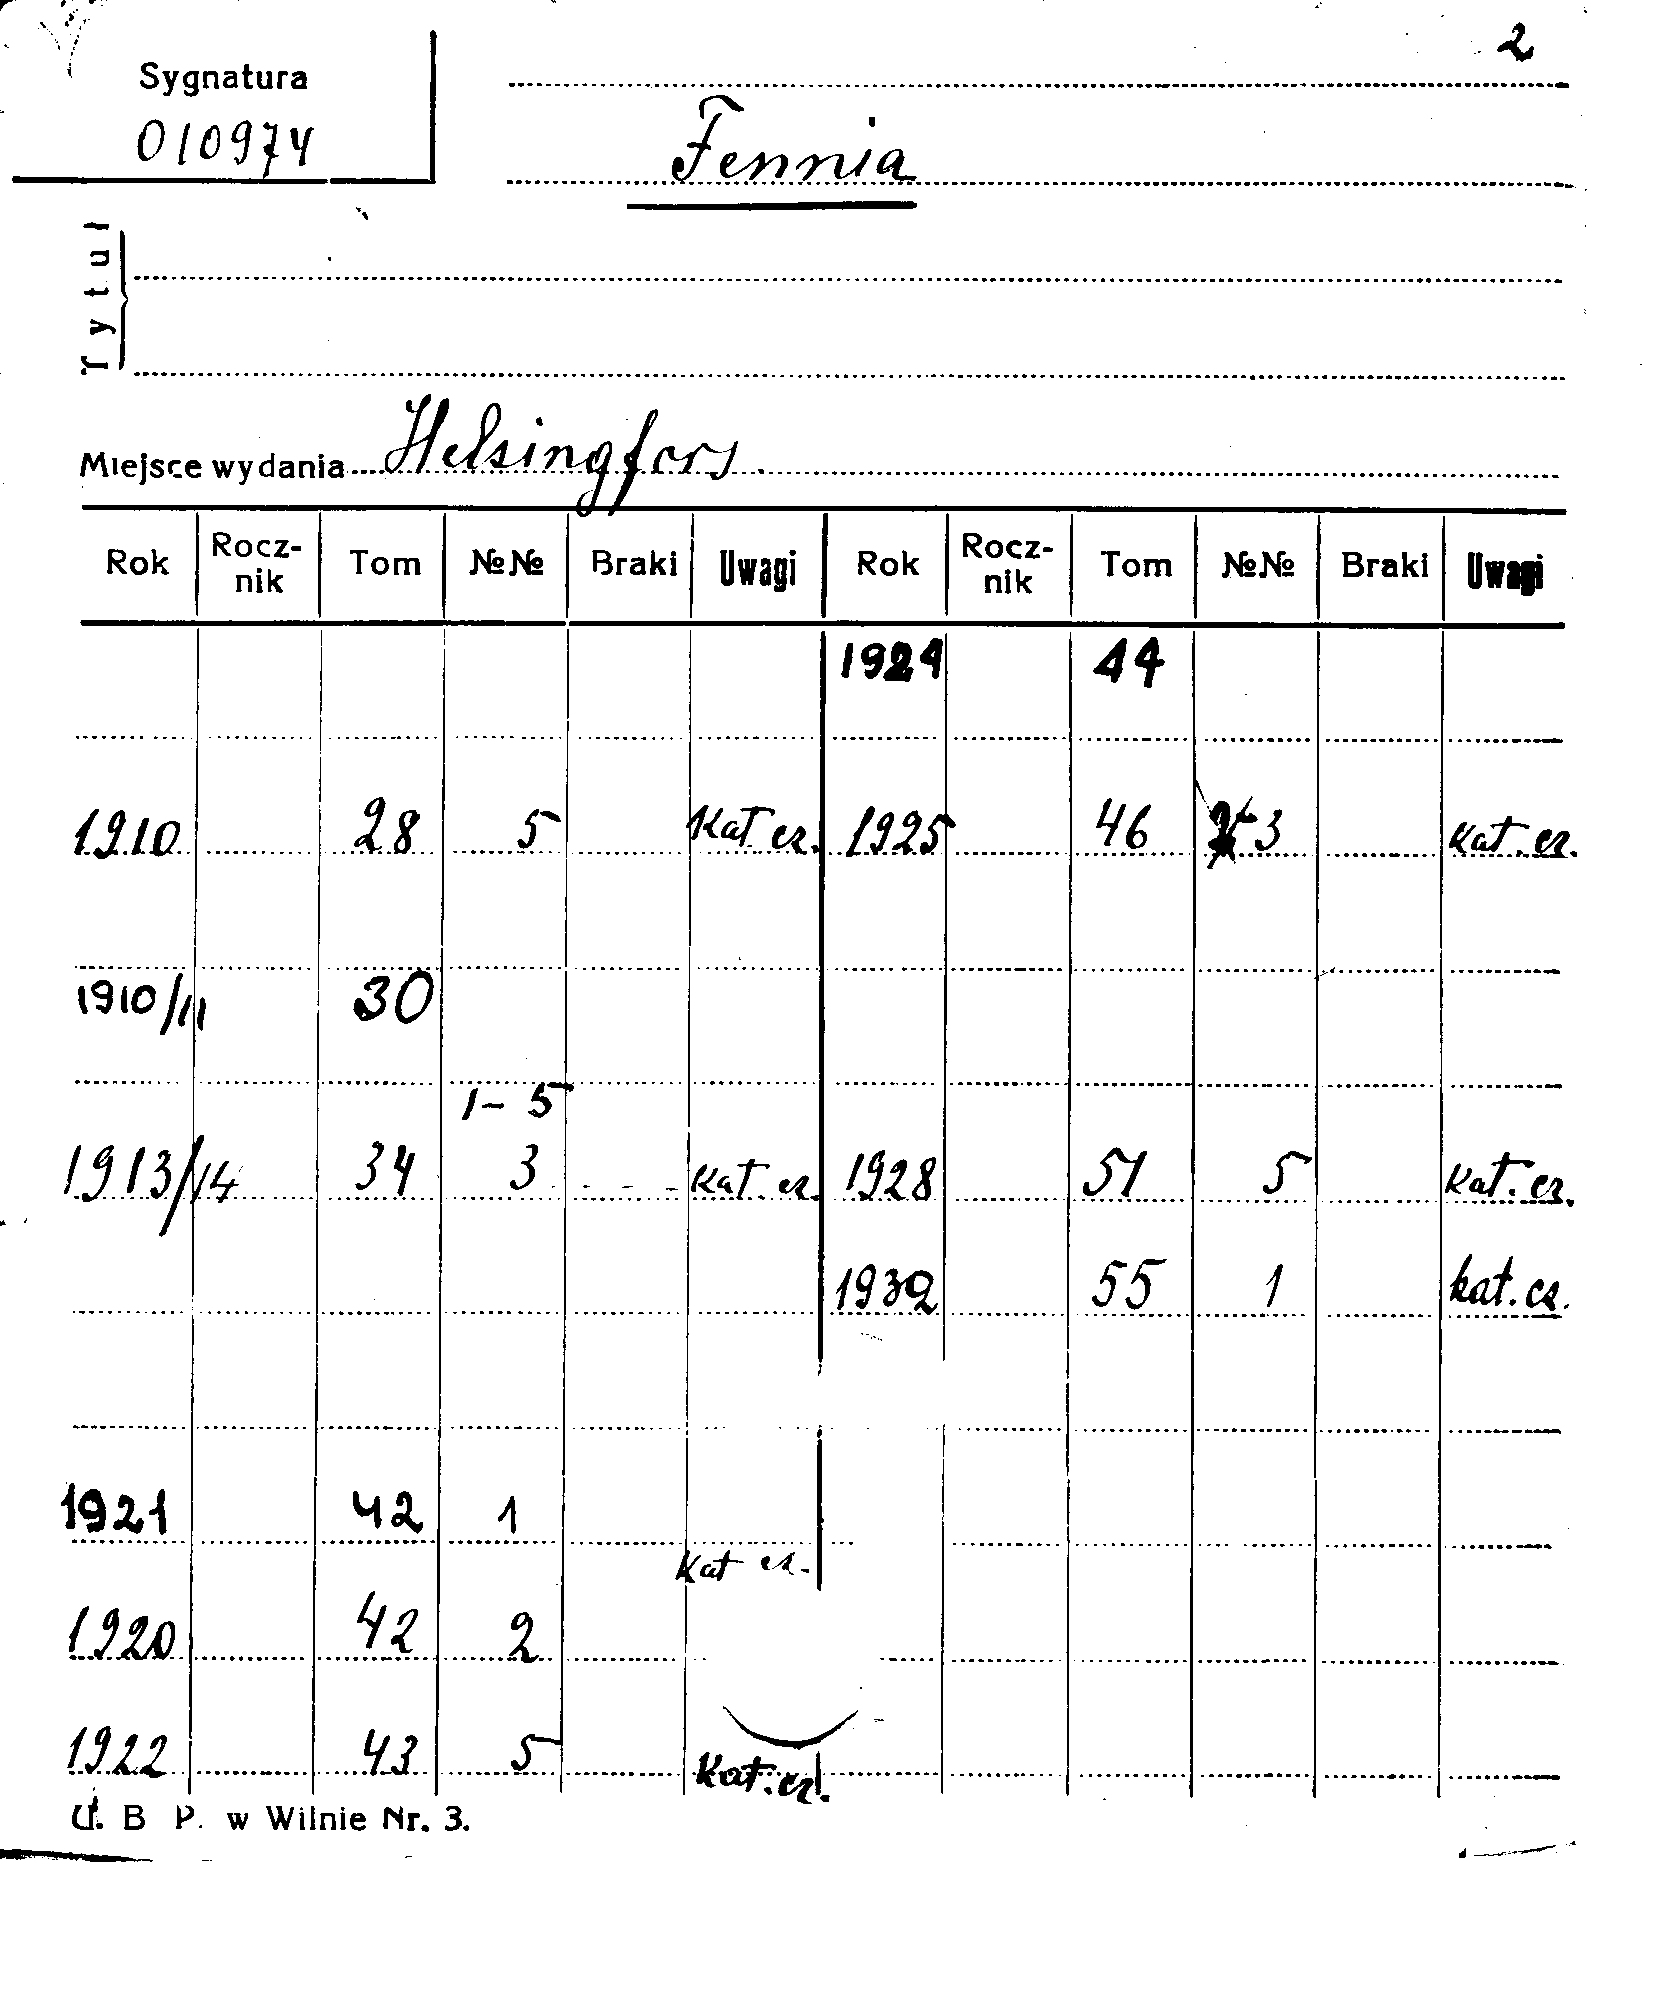 2
Sygnatura
010974
Fennia
Tytuł
Miejsce wydania Helsingfors.
Rok Rocz-nik Tom №№ Braki Uwagi Rok Rocz-nik Tom №№ Braki Uwagi
1924 44
1910 28 5 Kat cz. 1925 46 3 Kat. cz.
1910/11 30
1-5
1913/14 34 3 Kat. cz. 1928 51 5 Kat. cz.
1932 55 1 kat. cz.
1921 42 1
Kat cz.
1920 42 2
1922 43 5 Kat. cz.
U. B P. w Wilnie Nr. 3.